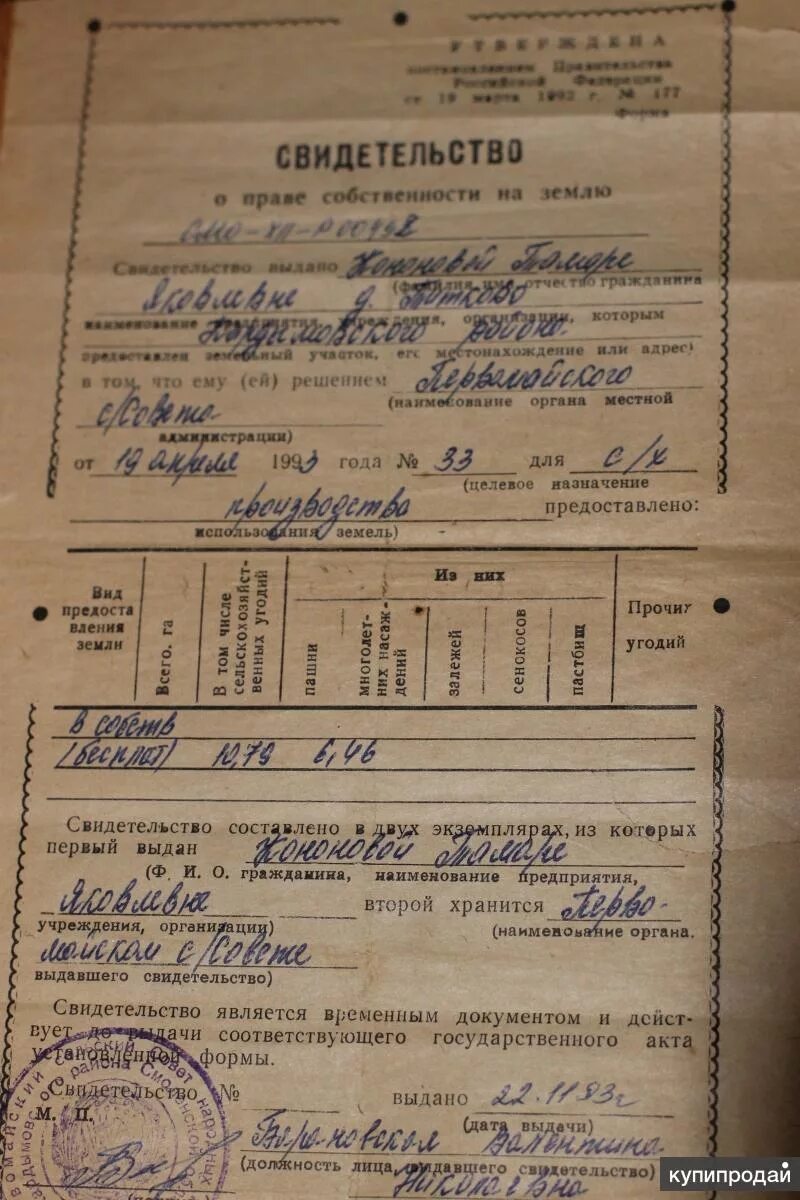 УТВЕРЖДЕНА
постановлением Правительства
Российской Федерации
от 19 марта 1992 г. № 177
Форма
СВИДЕТЕЛЬСТВО
о праве собственности на землю
Свидетельство выдано Кононовой Тамаре
(фамилия, имя, отчество гражданина
Яковлевне д.
наименование предприятия, учреждения, организации, которым
Кардымовского района
предоставлен земельный участок, его местонахождение или адрес)
в том, что ему (ей) решением Первомайского
(наименование органа местной
с/Совета
администрации)
от 19 апреля 1993 года № 33 для с/х
(целевое назначение
производства предоставлено:
использования земель)
Вид предоста вления земли
Всего, га
В том числе сельскохозяйст- венных угодий
Из них
пашни
многолет- них насаж- дений
залежей
сенокосов
пастбищ
Прочих угодий
В собств
(бесплат) 10,79 6,46
Свидетельство составлено в двух экземплярах, из которых
первый выдан Кононовой Тамаре
(Ф. И. О. гражданина, наименование предприятия,
Яковлевне второй хранится Перво-
учреждения, организации) (наименование органа.
майском с/Совете
выдавшего свидетельство)
Свидетельство является временным документом и дейст-
вует до выдачи соответствующего государственного акта
установленной формы.
Свидетельство № выдано 22.11.93г
М. П. (дата выдачи)
Барановская Валентина
(должность лица, выдавшего свидетельство)
Николаевна
купипродай